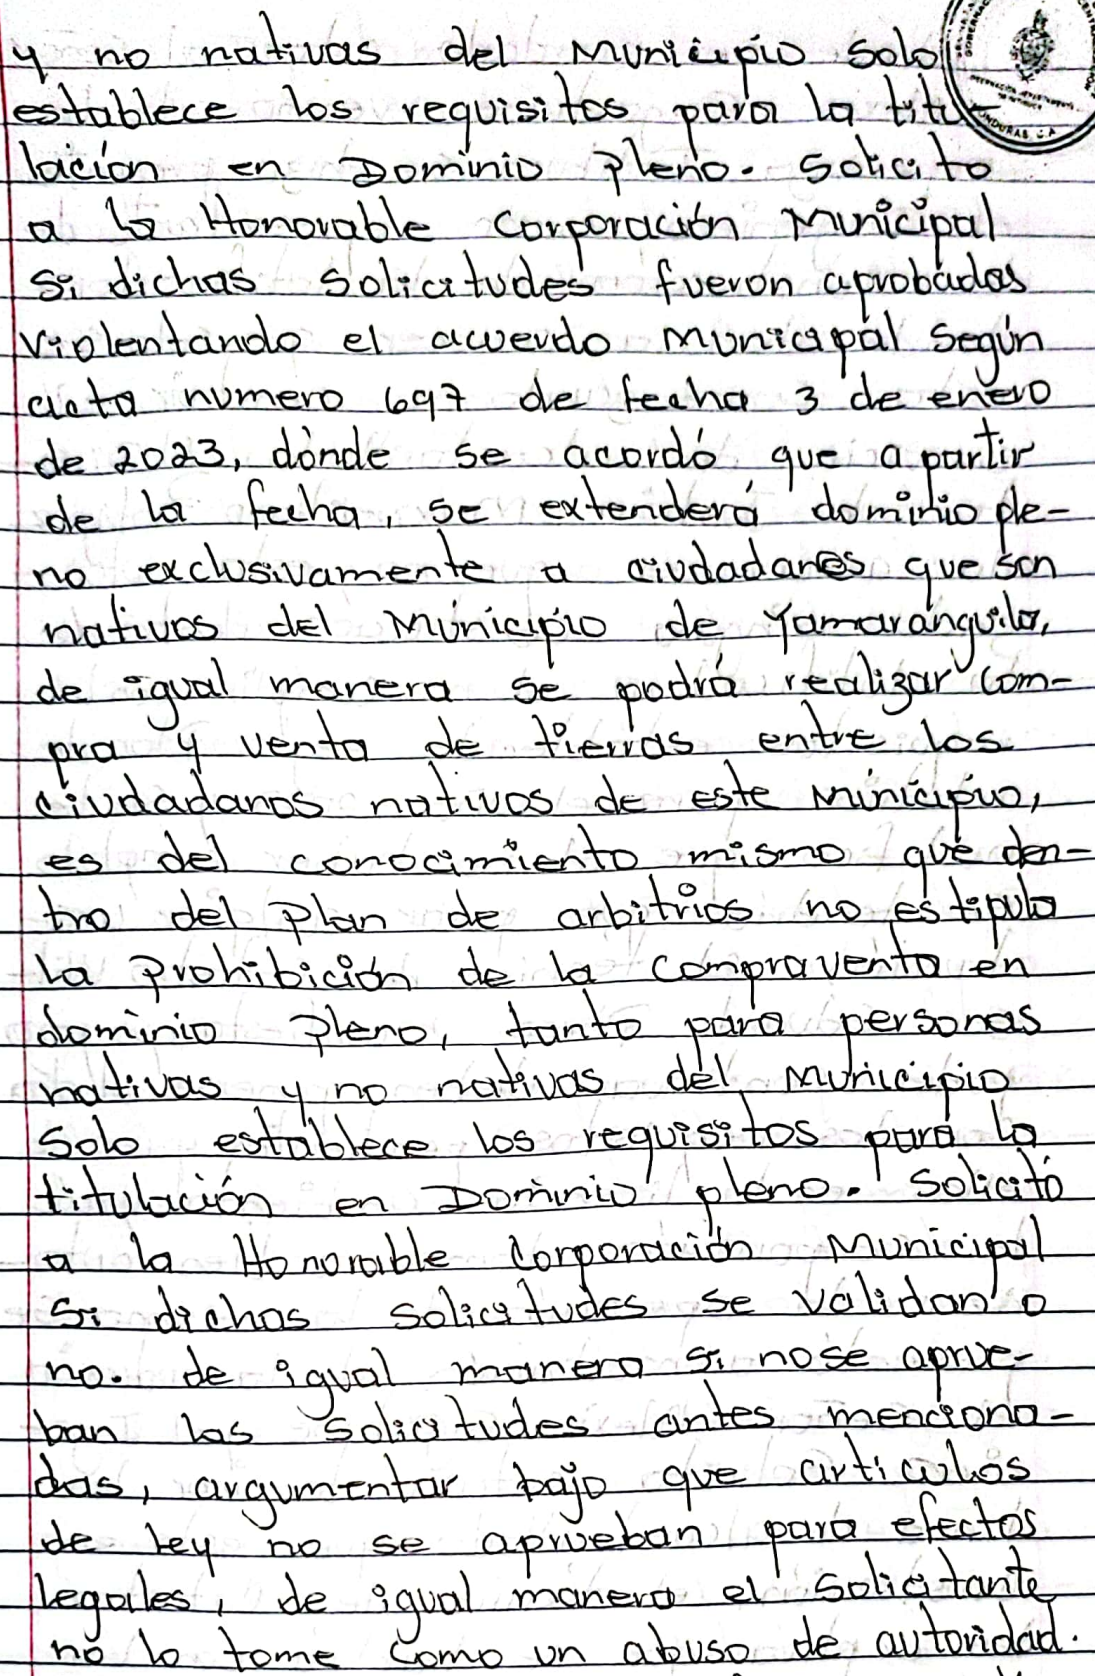 y no nativas del Municipio solo
establece los requisitos para la titu-
lación en Dominio Pleno. Solicito
a la Honorable Corporación Municipal
si dichas solicitudes fueron aprobadas
violentando el acuerdo Municipal Según
acta numero 697 de fecha 3 de enero
de 2023, dónde se acordó que a partir
de la fecha, se extenderá dominio ple-
no exclusivamente a ciudadanos que son
nativos del Municipio de Yamaranguila,
de igual manera se podrá realizar com-
pra y venta de tierras entre los
ciudadanos nativos de este Municipio,
es del conocimiento mismo que den-
tro del Plan de arbitrios no estipula
la Prohibición de la compraventa en
dominio Pleno, tanto para personas
nativas y no nativas del Municipio
Solo establece los requisitos para la
titulación en Dominio pleno. Solicitó
a la Honorable Corporación Municipal
Si dichas solicitudes se validan o
no. de igual manera si no se aprue-
ban las solicitudes antes menciona-
das, argumentar bajo que articulos
de ley no se aprueban para efectos
legales, de igual manera el solicitante
no lo tome como un abuso de autoridad.